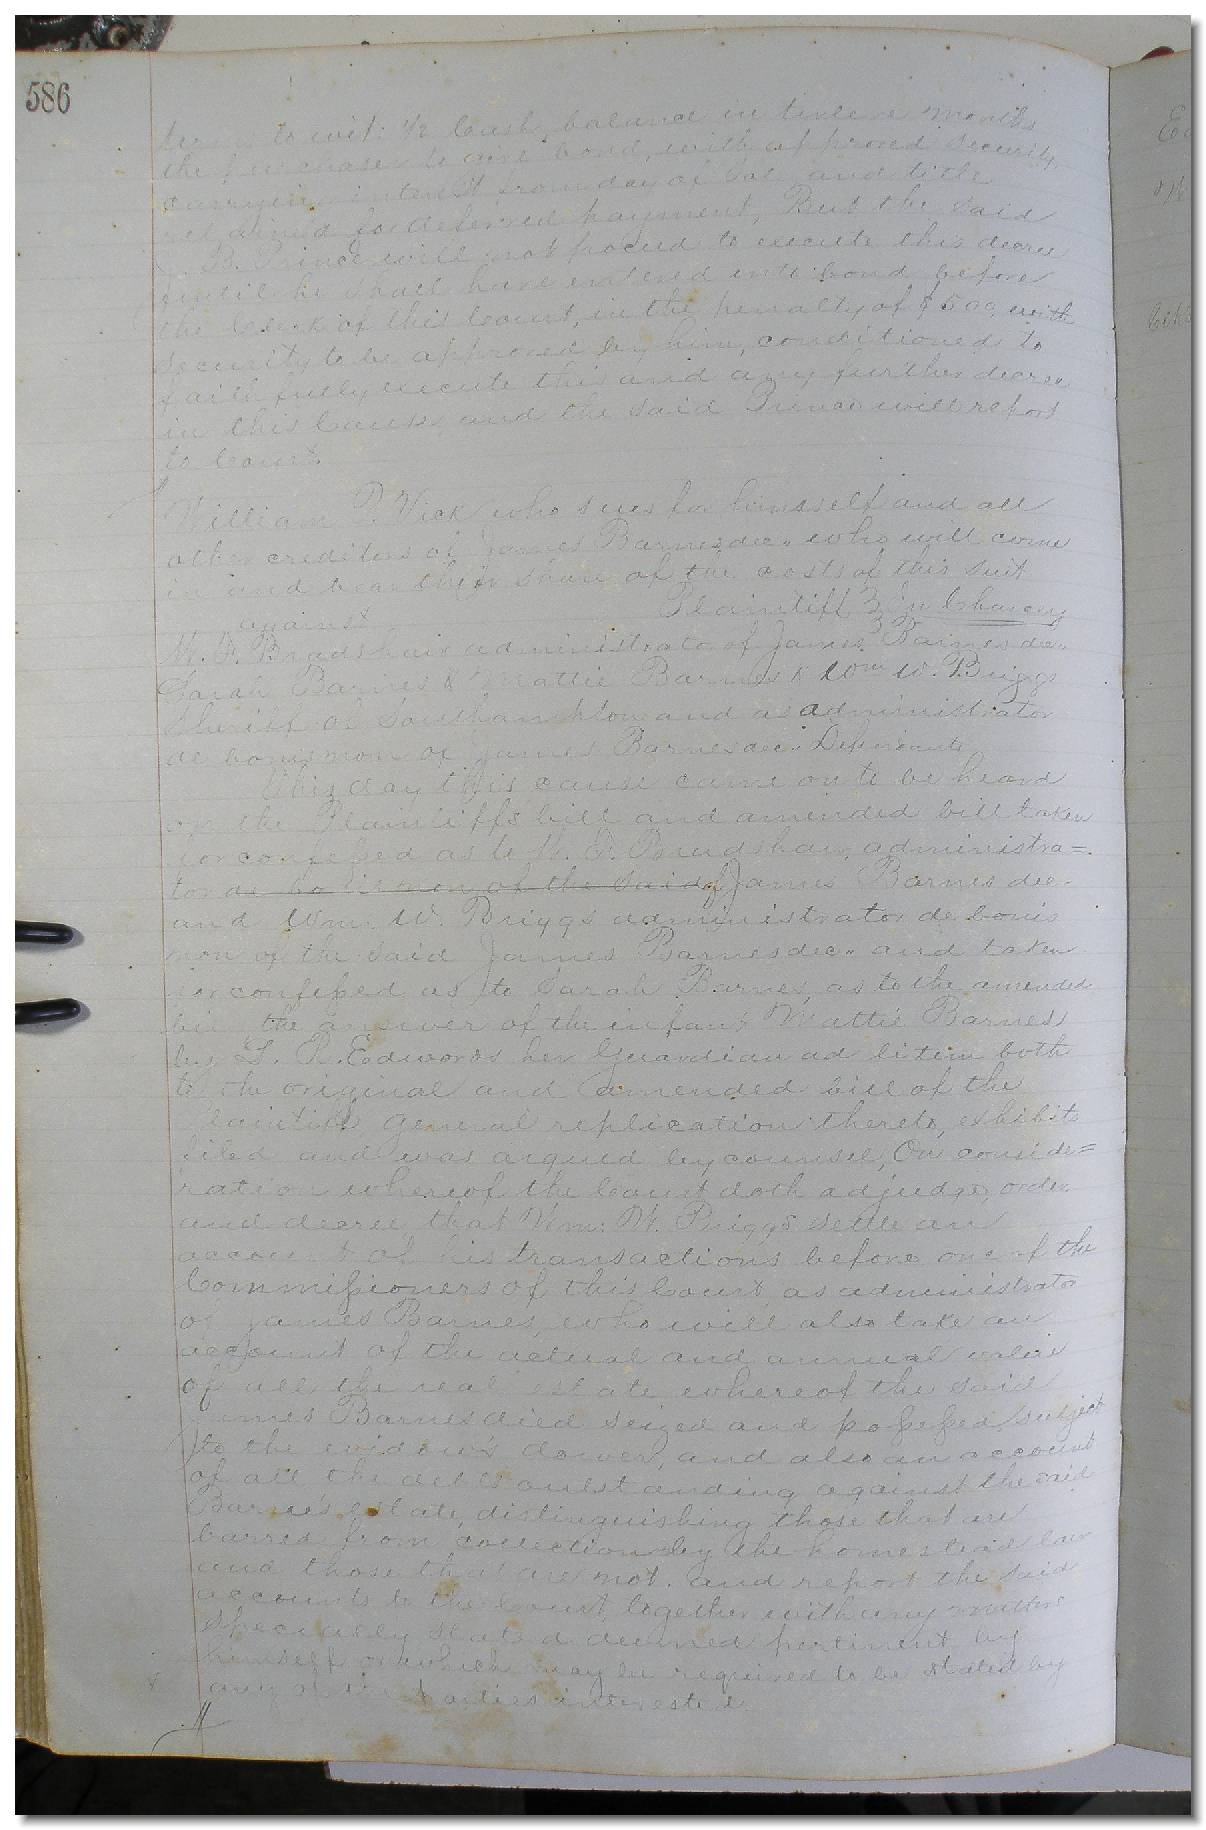 586
terms to wit: 1/2 Cash, balance in twleve months
the purchaser to give bond, with approved security
carrying interest from day of sale and title
retained for deferred payment, But the said
J. B. Prince will not proceed to execute this decree
until he shall have entered into bond before
the Clerk of this Court, in the penalty of $500, with
security to be approved by him, conditioned to
faithfully execute this and any further decree
in this cause, and the said Prince will report
to Court.
William P. Vick who sues for himself and all
other creditors of James Barnes dec.. who will come
in and bear their share of the costs of this suit
Plaintiff } In Chancery
against
W. F. Bradshaw administrator of James Barnes dec..
Sarah Barnes & Mattie Barnes & Wm W. Briggs
Sheriff of Southampton and as administrator
de bonis non of James Barnes dec.. Defendants
This day this cause came on to be heard
on the Plaintiffs bill and amended bill taken
for confessed as to W. F. Bradshaw, administra=
tor de bonis non of the said of James Barnes dec.
and Wm. W. Briggs administrator de bonis
non of the said James Barnes dec.. and taken
for confessed as to Sarah Barnes, as to the amended
bill the answer of the infant Mattie Barnes
by L. R. Edwards her Guardian ad litem both
to the original and amended bill of the
Plaintiff, general replication thereto, exhibits
filed and was argued by counsel, On conside=
ration whereof the Court doth adjudge, order
and decree that Wm: W. Briggs settle an
account of his transactions before one of the
Commissioners of this Court, as administrator
of James Barnes, who will also take an
account of the actual and annual value
of all the real estate whereof the said
James Barnes died seized and possessed, subject
to the widow's dower, and also an account
of all the debts outstanding against the said
Barnes estate, distinguishing those that are
barred from collection by the homestead law
and those that are not. and report the said
accounts to the Court, together with any matters
specially stated deemed pertinent by
himself or which may be required to be stated by
any of the parties interested